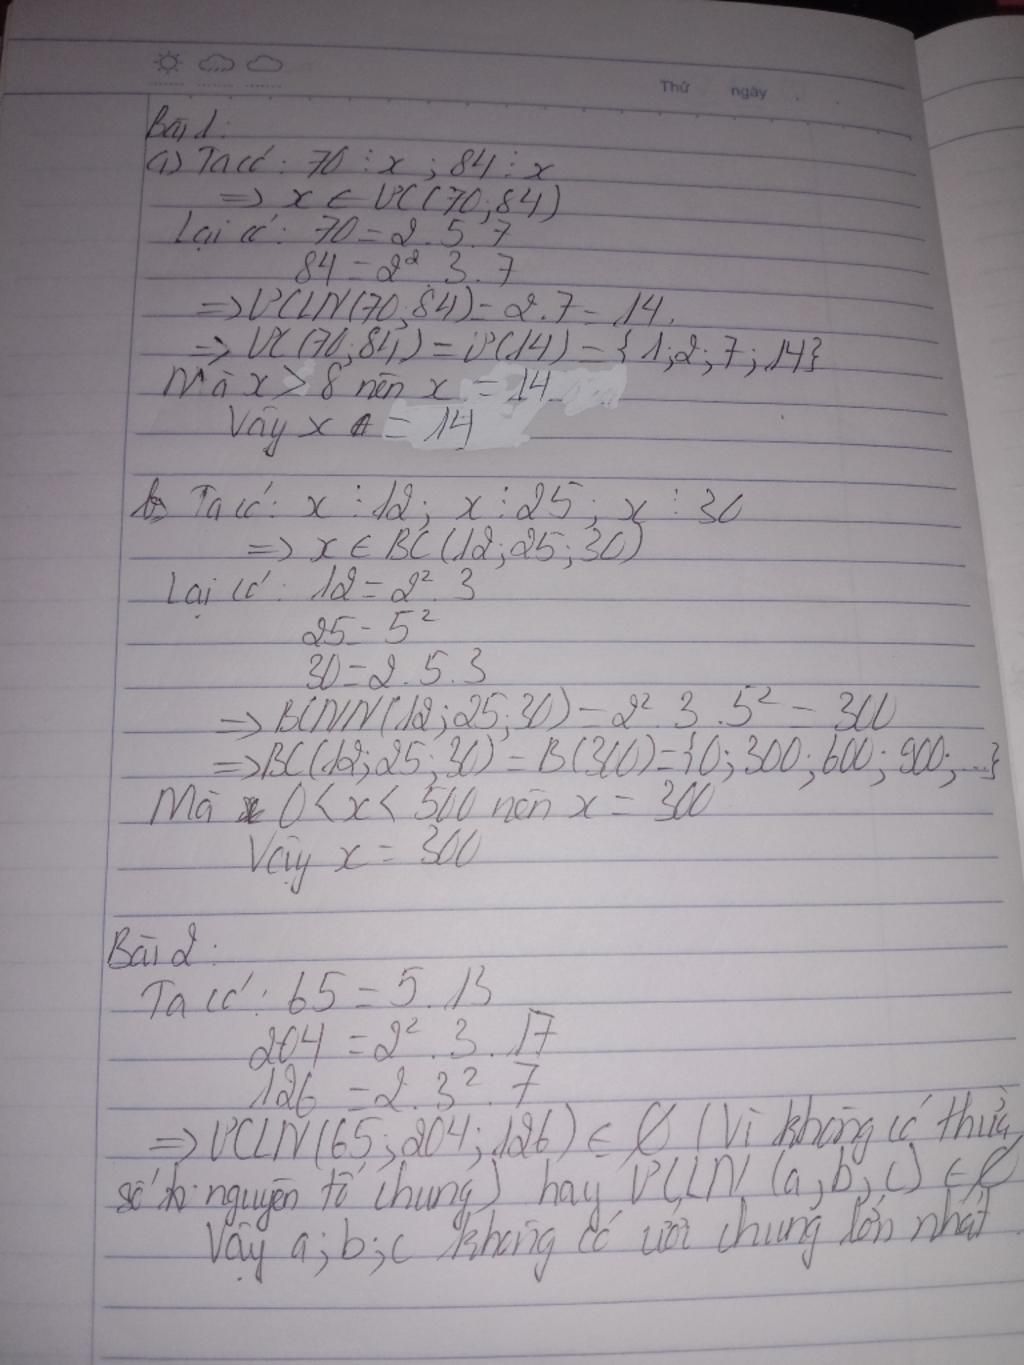 Thứ ngày
Bài 1:
a) Ta có: 70 ⋮ x ; 84 ⋮ x
=> x ∈ ƯC(70;84)
Lại có: 70 = 2.5.7
84 = 2². 3. 7
=> ƯCLN(70;84) = 2.7 = 14.
=> ƯC(70;84) = Ư(14) = {1;2;7;14}
Mà x > 8 nên x = 14
Vậy x = 14
b) Ta có: x ⋮ 12; x ⋮ 25; x ⋮ 30
=> x ∈ BC(12;25;30)
Lại có: 12 = 2². 3
25 = 5²
30 = 2.5.3
=> BCNN(12;25;30) = 2². 3 .5² = 300
=> BC(12;25;30) = B(300) = {0;300;600;900;...}
Mà 0 < x < 500 nên x = 300
Vậy x = 300
Bài 2:
Ta có: 65 = 5.13
204 = 2². 3. 17
126 = 2. 3². 7
=> ƯCLN(65;204;126) ∈ ∅ (Vì không có thừa
số nguyên tố chung) hay ƯCLN (a;b;c) ∈ ∅
Vậy a;b;c không có ước chung lớn nhất